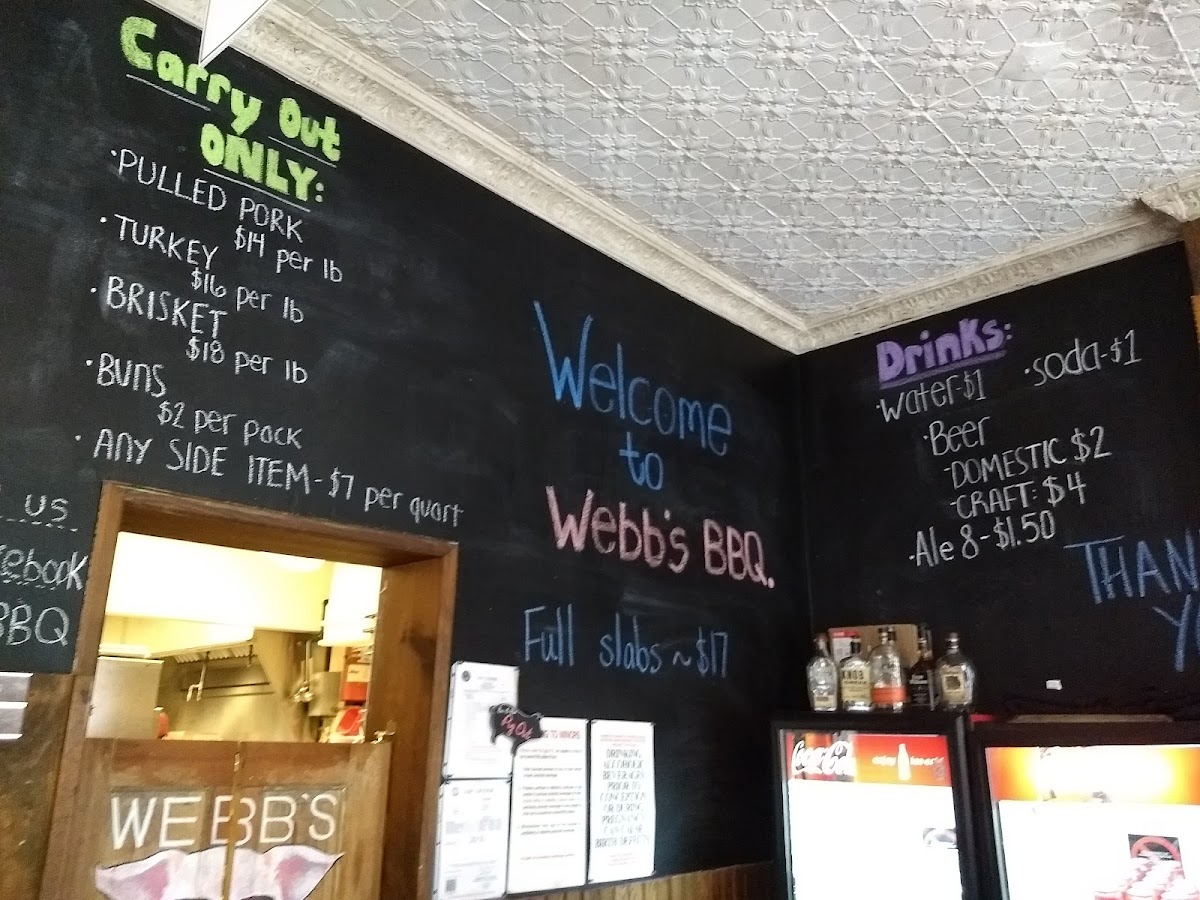 Carry Out
ONLY:
·PULLED PORK
$14 per lb
·TURKEY
$16 per lb
·BRISKET
$18 per lb
·BUNS
$2 per pack
·ANY SIDE ITEM-$7 per quart
US
BBQ
Welcome
to
Webb's BBQ.
Full slabs ~ $17
Drinks:
·Water-$1
·soda-$1
·Beer
-DOMESTIC $2
-CRAFT: $4
·Ale 8-$1.50
THAN
WEBB'S
Pig Out
TO MINORS
DRINKING
ALCOHOLIC
BEVERAGES
PRIOR TO
CONCEPTION
OR DURING
PREGNANCY
CAN CAUSE
BIRTH DEFECTS
KNOB
Coca-Cola
enjoy